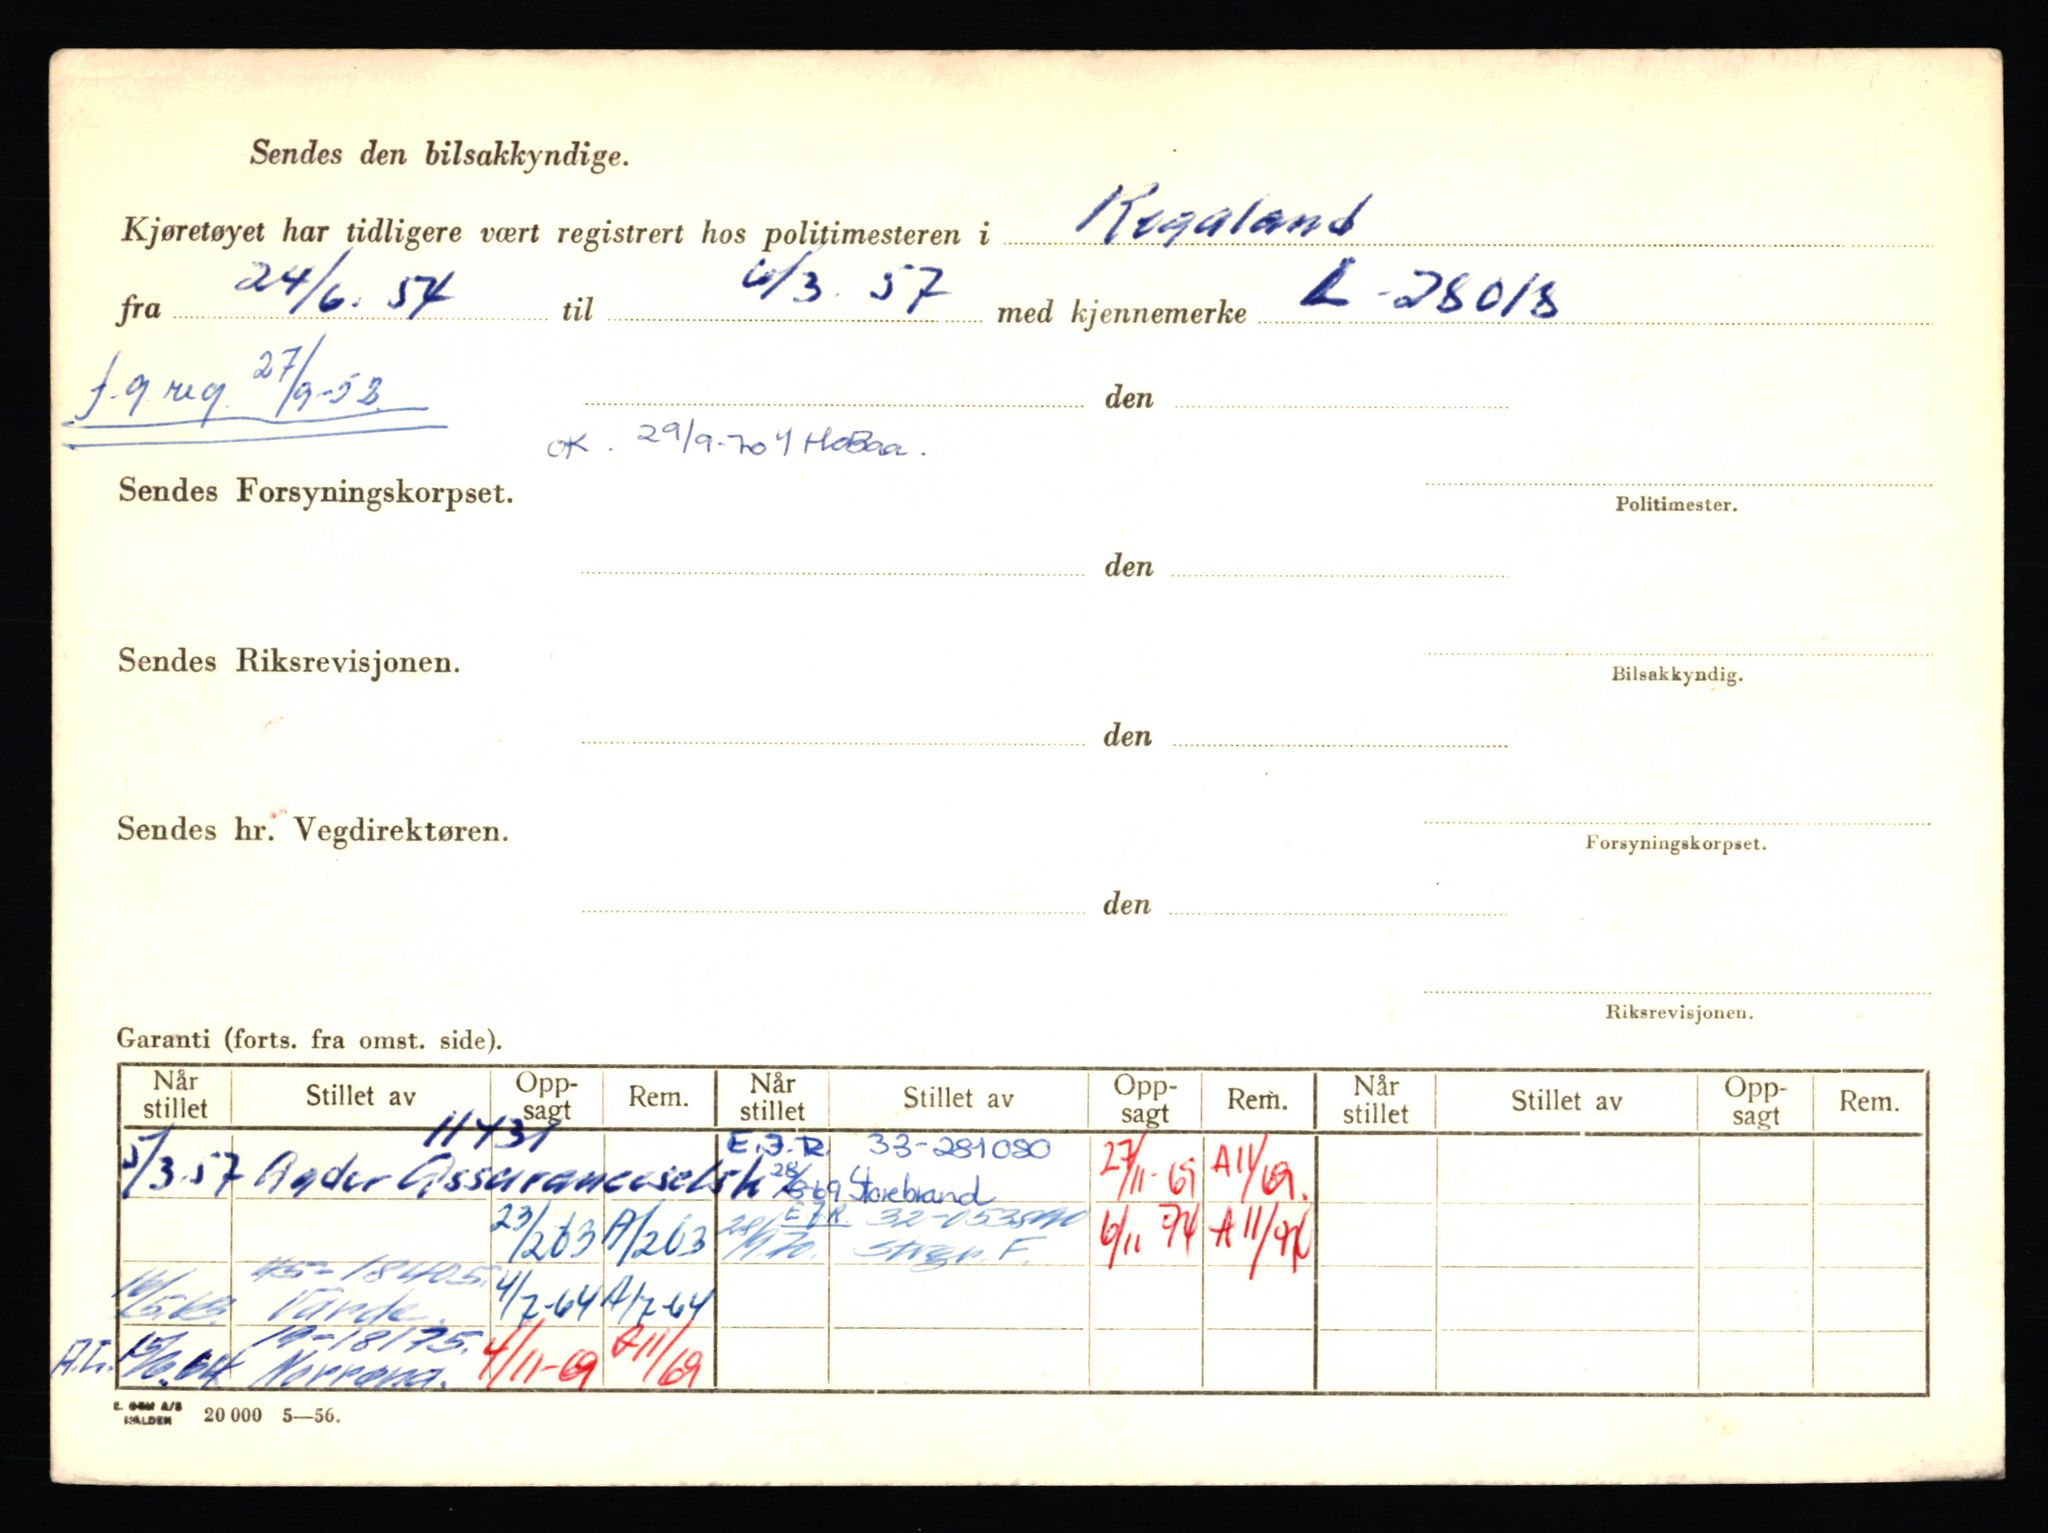 Sendes den bilsakkyndige.
Kjøretøyet har tidligere vært registrert hos politimesteren i Rogaland
fra 24/6. 54 til 6/3. 57 med kjennemerke L-28018
f. g reg. 27/9-52
den
OK. 29/9-70
Sendes Forsyningskorpset.
Politimester.
den
Sendes Riksrevisjonen.
Bilsakkyndig.
den
Sendes hr. Vegdirektøren.
Forsyningskorpset.
den
Riksrevisjonen.
Garanti (forts. fra omst. side).
Når stillet Stillet av Opp-sagt Rem. Når stillet Stillet av Opp-sagt Rem. Når stillet Stillet av Opp-sagt Rem.
11431 E.J.R. 33-281080
5/3.57 Agder Assuranceselsk 28/6-69 Storebrand 27/11-69 A11/69.
23/263 A/263 E.J.R. 6/11 74 A11/74
45-18405.
Varde. 4/7-64 A/7-64
19-18175.
Norrøna. 4/11-69 A11/69
E. GEM A/S
HALDEN 20 000 5—56.